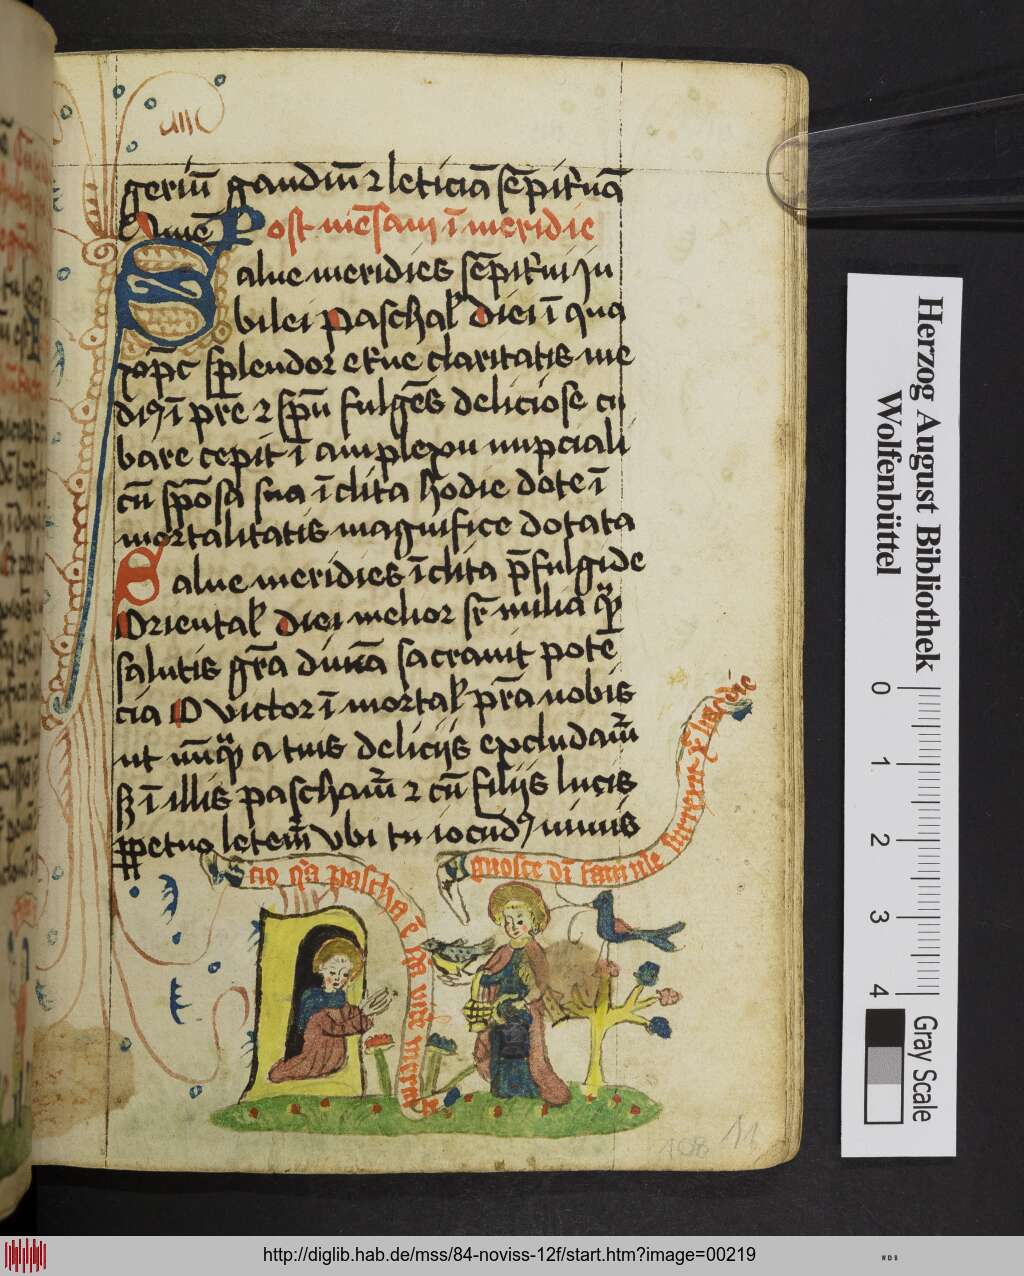 geriū gaudiū ⁊ leticiā sēpit'nā
Amē Post mēsam ī meridie
Salue meridies sēpit'ni Ju
bilei paschal' diei ī qua
splendor et'ne claritatis me
di9 ī pr̄e ⁊ sp̄u fulgēs deliciose cu
bare cepit ī amplexu nupciali
cū spōsa sua īclita hodie dote ī
mortalitatis magnifice dotata
Salue meridies īclita p̄fulgide
Oriental' diei melior sr̄ milia
salutis gr̄a diuīa sacrauit potē
cia O victor ī mortal' pr̄a nobis
ut nūq̄ a tuis delicijs excludam̄
sȝ ī illis pascham̄ ⁊ cū filijs lucis
ꝑpetuo letem̄ Vbi tu iocūd9 viuis
Scio q̄a pascha ē
gnosce
surrexit
hodie
108 11
Herzog August Bibliothek
Wolfenbüttel
0 1 2 3 4
Gray Scale
http://diglib.hab.de/mss/84-noviss-12f/start.htm?image=00219
WDB